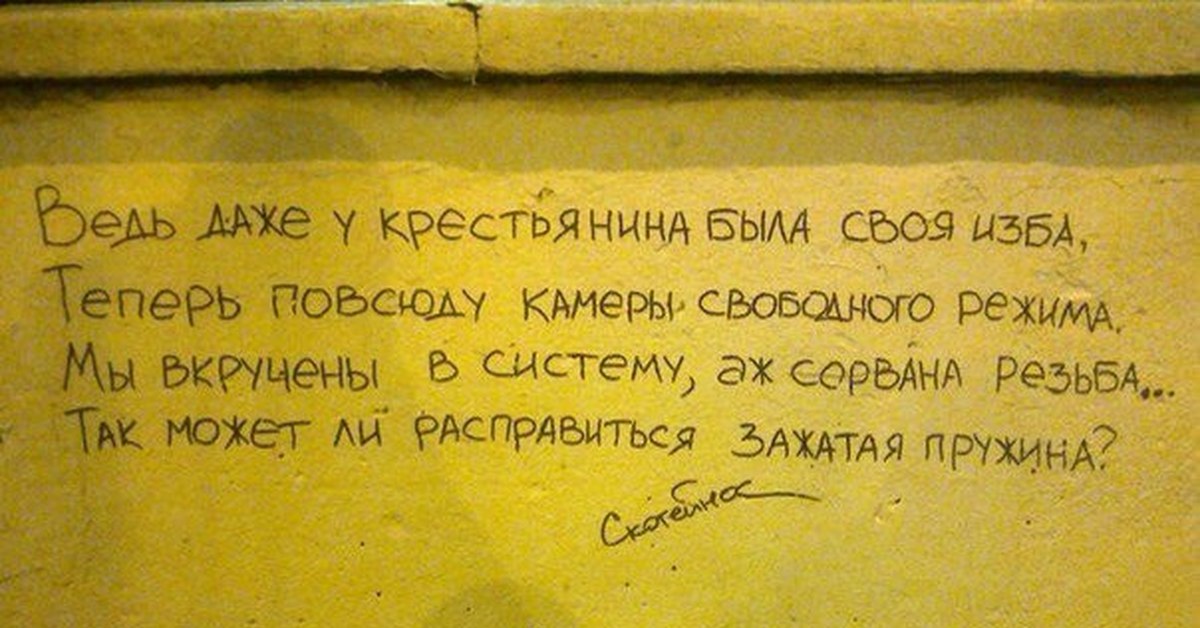 Ведь даже у крестьянина была своя изба,
Теперь повсюду камеры свободного режима.
Мы вкручены в систему, аж сорвана резьба...
Так может ли расправиться зажатая пружина?
Скотейнос